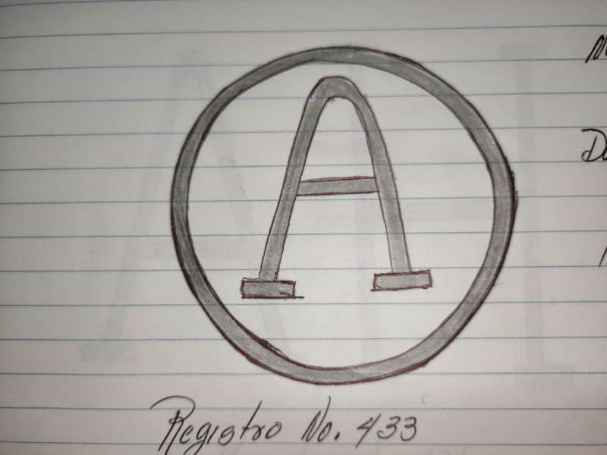 A
Registro No. 433